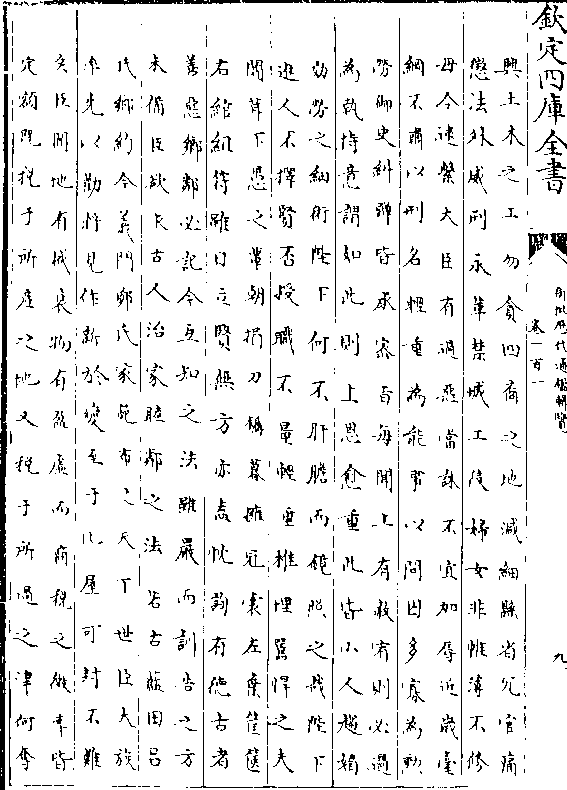 欽定四庫全書
御批歷代通鑑輯覽
卷一百一
九
興土木之工勿貪四裔之地減細縣省冗官痛
懲法外威刑永革禁城工役婦女非帷薄不修
毋令逮繫大臣有過惡當誅不宜加辱近歲臺
綱不肅以刑名輕重為能事以問囚多寡為勲
勞御史糾彈皆承密旨每聞上有赦宥則必過
為執持意謂如此則上恩愈重此皆小人趨媚
効勞之細術陛下何不肝膽而鏡照之哉陛下
進人不擇賢否授職不量輕重椎埋嚚悍之夫
闒茸下愚之輩朝捐刀鑷暮擁冠裳左棄筐篋
右綰組符雖曰立賢無方亦盍忱詢有德古者
善惡鄉鄰必記今互知之法雖嚴而訓告之方
未備臣欲求古人治家睦鄰之法若古藍田呂
氏鄉約今義門鄭氏家範布之天下世臣大族
率先以勸將見作新於變至于比屋可封不難
矣臣聞地有盛衰物有盈虛而商税之徵率皆
定額既税于所產之地又税于所過之津何奪